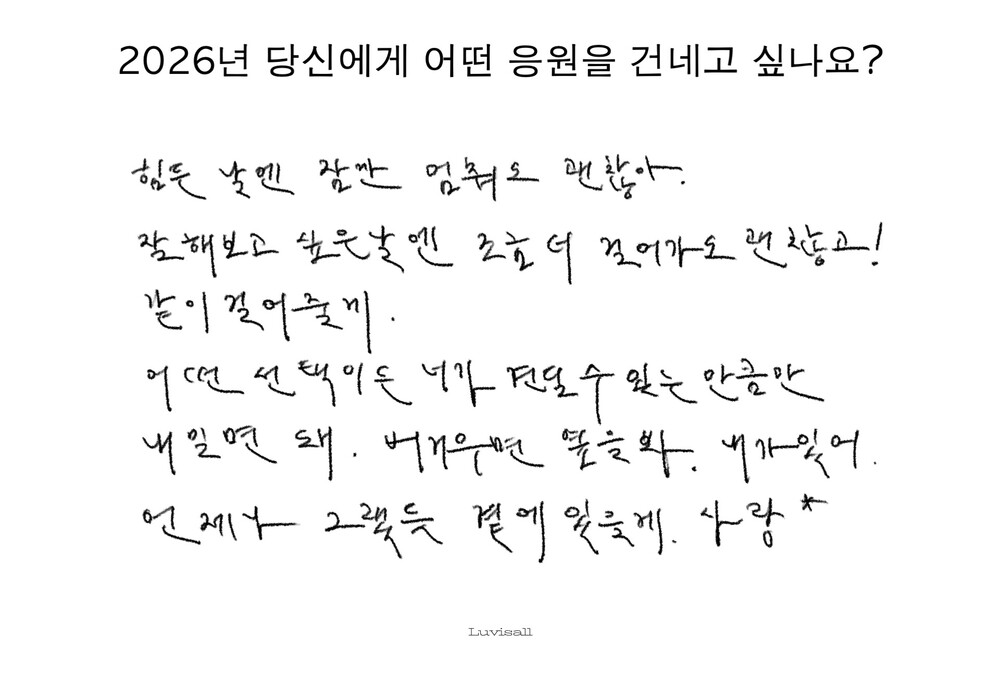 2026년 당신에게 어떤 응원을 건네고 싶나요?
힘든 날엔 잠깐 멈춰도 괜찮아.
잘 해보고 싶은 날엔 조금 더 걸어가도 괜찮고!
같이 걸어줄게.
어떤 선택이든 너가 견딜 수 있는 만큼만
내밀면 돼. 버거우면 옆을 봐. 내가 있어.
언제나 그랬듯 곁에 있을게. 사랑*
Luvisall